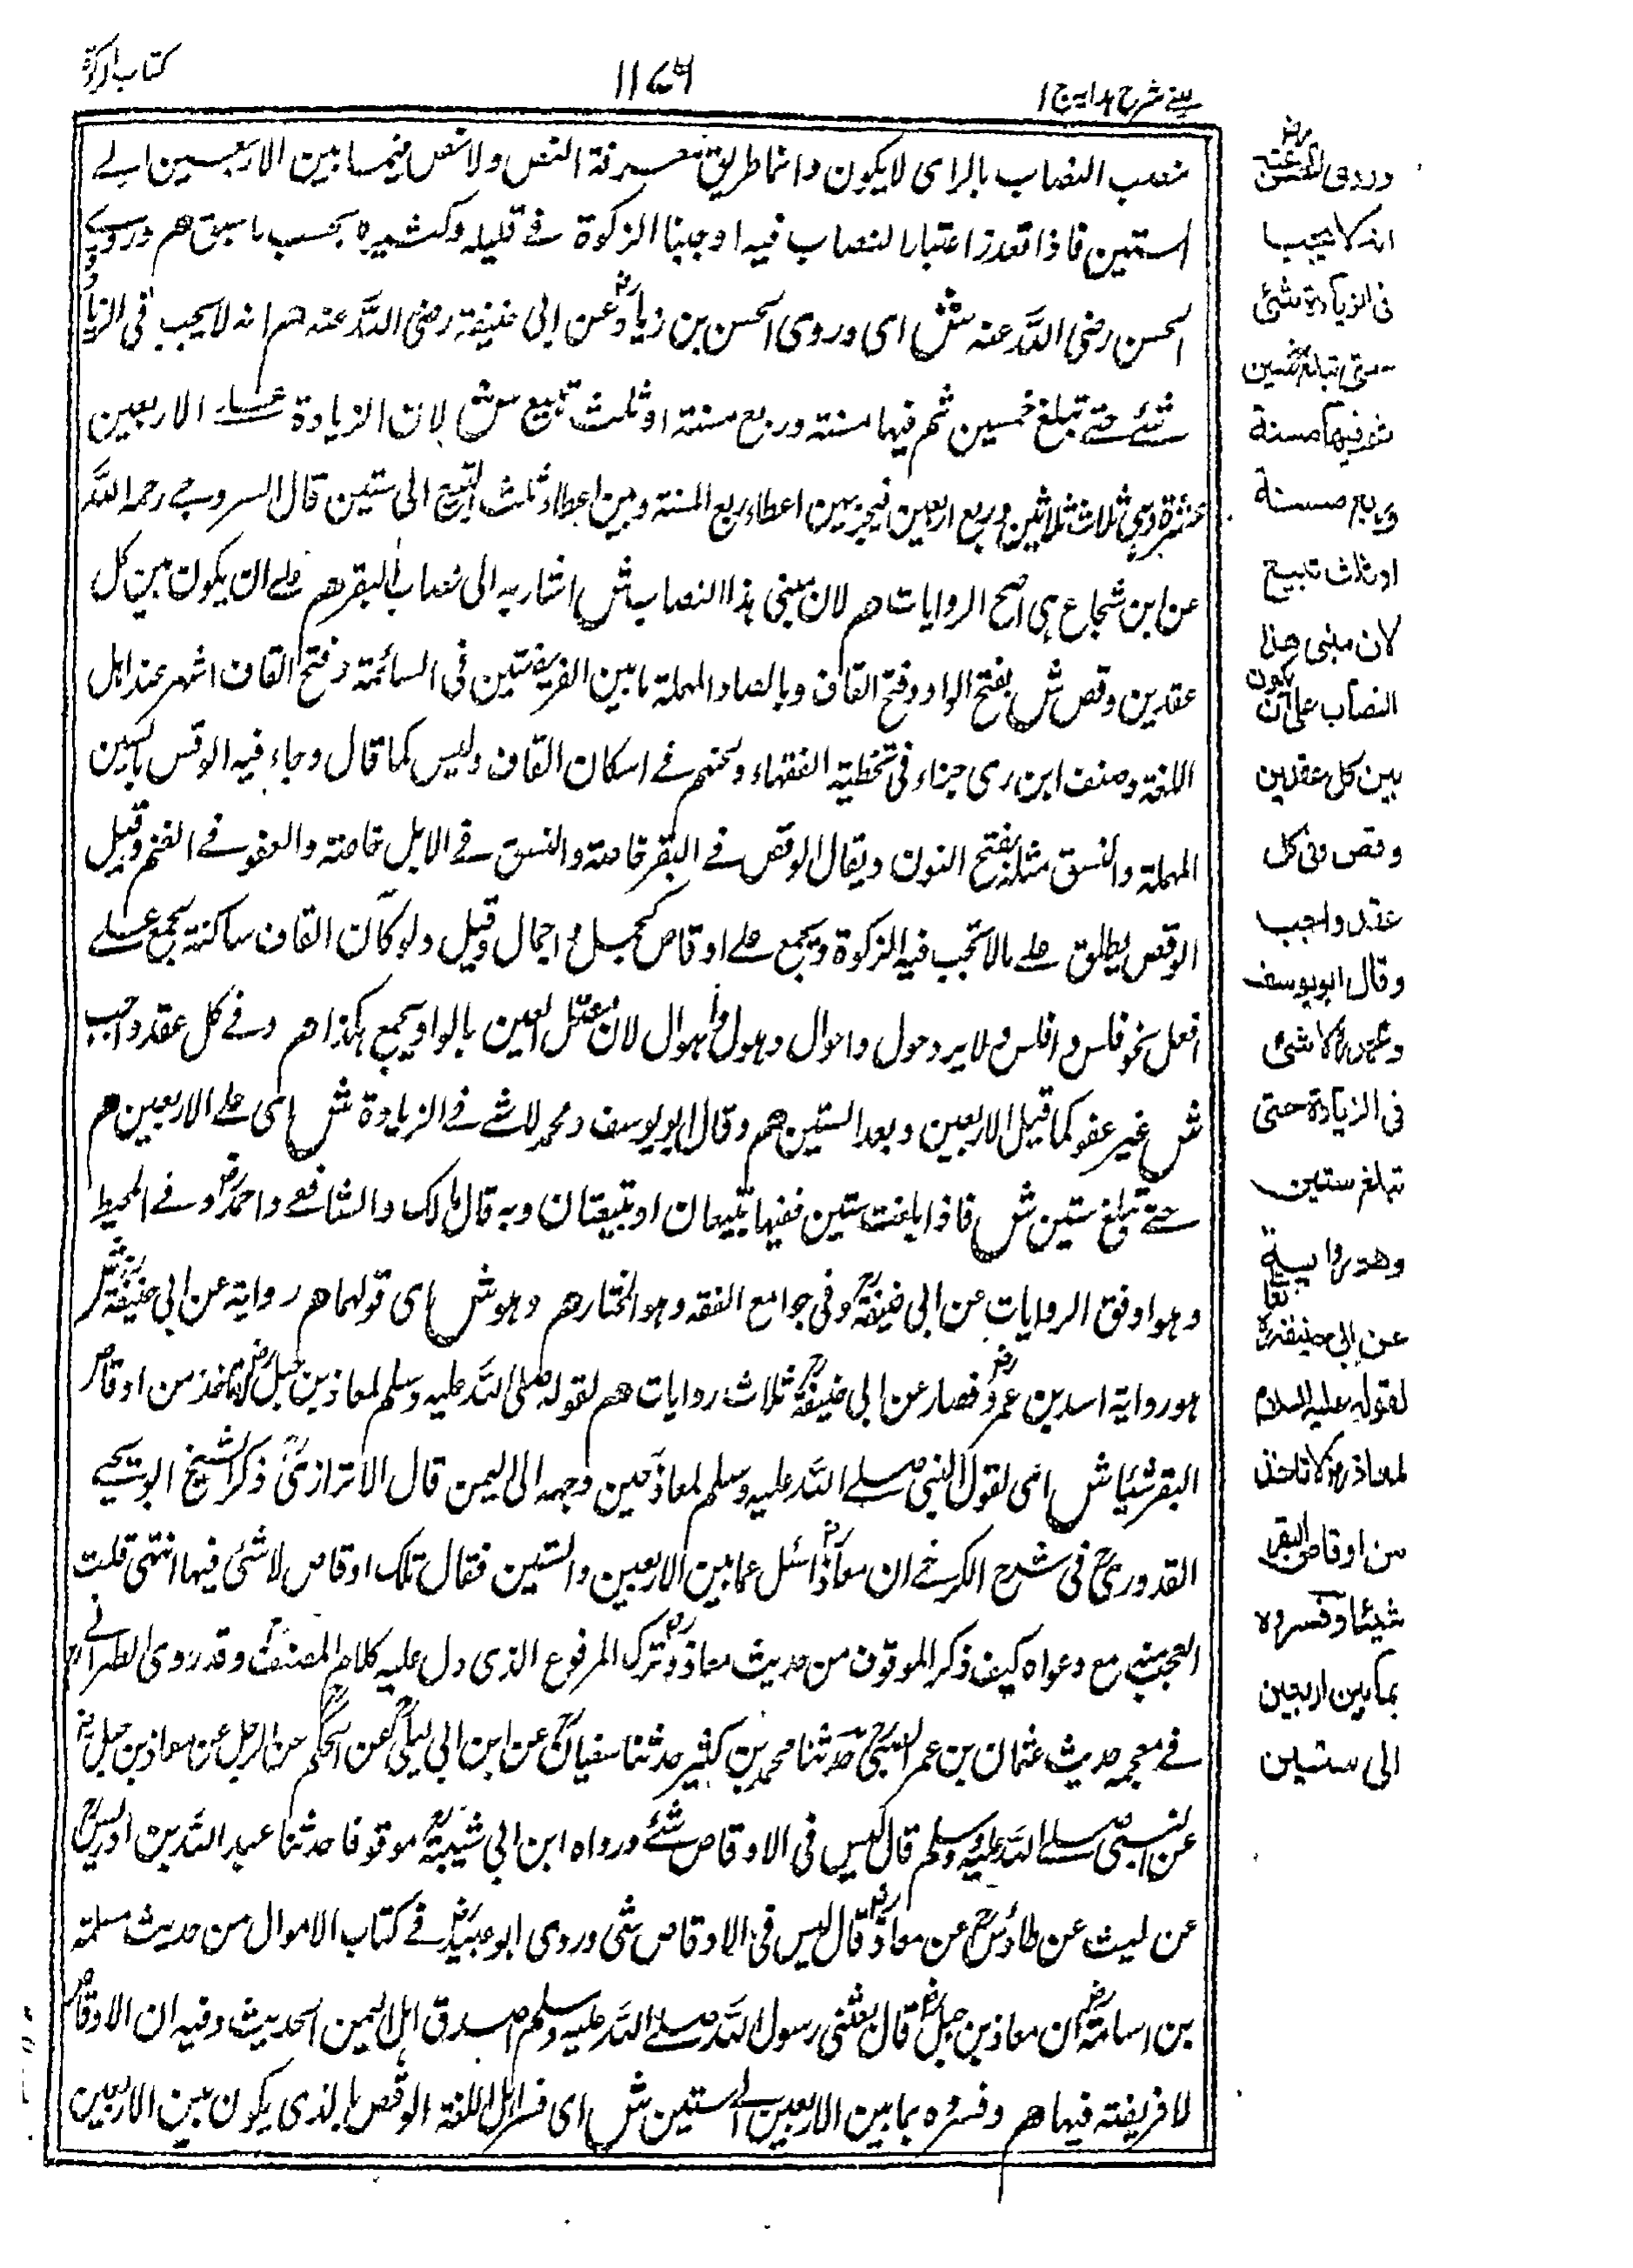 كتاب الزكوة
١١٧٦
عينى شرح هدايه ج ١
نصب النصاب بالراى لا يكون وانما طريق معرفة النص ولا نص فيما بين الاربعين الى
الستين فاذا تعذر اعتبار النصاب فيه اوجبنا الزكوة فى قليله وكثيره بحسب ما سبق هم وروى
الحسن رضى الله عنه ش اى وروى الحسن بن زياد عن ابى حنيفة رضى الله عنه هم انه لا يجب فى الزيادة
شئ حتى تبلغ خمسين ثم فيها مسنة وربع مسنة او ثلث تبيع ش لان الزيادة على الاربعين
عشرة وهى ثلاث ثلاثين وربع اربعين فيخير بين اعطاء ربع المسنة وبين اعطاء ثلث التبيع الى ستين قال السروجى رحمه الله
عن ابن شجاع هى اصح الروايات هم لان مبنى هذا النصاب ش اشار به الى نصاب البقر هم على ان يكون بين كل
عقدين وقص ش بفتح الواو وفتح القاف وبالصاد المهملة ما بين الفريضتين فى السائمة وفتح القاف اشهر عند اهل
اللغة وصنف ابن برى جزاء فى تخطية الفقهاء ولحنهم فى اسكان القاف وليس كما قال وجاء فيه الوقس بالسين
المهملة والنسق مثله بفتح النون ويقال الوقص فى البقر خاصة والنسق فى الابل خاصة والعفو فى الغنم وقيل
الوقص يطلق على ما لا تجب فيه الزكوة ويجمع على اوقاص كجمل واجمال وقيل ولو كان القاف ساكنة يجمع على
افعل نحو فلس وافلس ولا يرد حول واحوال وهول واهوال لان معتل العين بالواو يجمع هكذا هم وفى كل عقد واجب
ش غير عفو كما قبل الاربعين وبعد الستين هم وقال ابو يوسف ومحمد لا شئ فى الزيادة ش اى على الاربعين هم
حتى تبلغ ستين ش فاذا بلغت ستين ففيها تبيعان او تبيعتان وبه قال مالك والشافعى واحمد وفى المحيط
وهو اوفق الروايات عن ابى حنيفة وفى جوامع الفقه وهو المختار هم وهو ش اى قولهما هم رواية عن ابى حنيفة ش
هو رواية اسد بن عمرو فصار عن ابى حنيفة ثلاث روايات هم لقوله صلى الله عليه وسلم لمعاذ بن جبل لا تاخذ من اوقاص
البقر شيئا ش اى لقول النبى صلى الله عليه وسلم لمعاذ حين وجهه الى اليمن قال الاترازى ذكر الشيخ ابو يحيى
القدورى فى شرح الكرخى ان معاذا سئل عما بين الاربعين والستين فقال تلك اوقاص لا شئ فيها انتهى قلت
العجب منه مع دعواه كيف ذكر الموقوف من حديث معاذ وترك المرفوع الذى دل عليه كلام المصنف وقد روى الطبرانى
فى معجمه حديث عثمان بن عمر الضبى حدثنا محمد بن كثير حدثنا سفيان عن ابن ابى ليلى عن الحكم عن الرجل عن معاذ بن جبل
عن النبى صلى الله عليه وسلم قال ليس فى الاوقاص شئ ورواه ابن ابى شيبة موقوفا حدثنا عبد الله بن ادريس
عن ليث عن طاؤس عن معاذ قال ليس فى الاوقاص شى وروى ابو عبيد فى كتاب الاموال من حديث سلمة
بن اسامة ان معاذ بن جبل قال بعثنى رسول الله صلى الله عليه وسلم اصدق اهل اليمن الحديث وفيه ان الاوقاص
لا فريضة فيها هم وفسروه بما بين الاربعين الى ستين ش اى فسر اهل اللغة الوقص بالذى يكون بين الاربعين
وروى الحسن عنه
انه لا يجب
فى الزيادة شئ
حتى تبلغ خمسين
ثم فيها مسنة
وربع مسنة
او ثلث تبيع
لان مبنى هذا
النصاب على ان يكون
بين كل عقدين
وقص وفى كل
عقد واجب
وقال ابو يوسف
ومحمد لا شئ
فى الزيادة حتى
تبلغ ستين
وهو رواية
عن ابى حنيفة
لقوله عليه السلام
لمعاذ لا تاخذ
من اوقاص البقر
شيئا وفسروه
بما بين اربعين
الى ستين